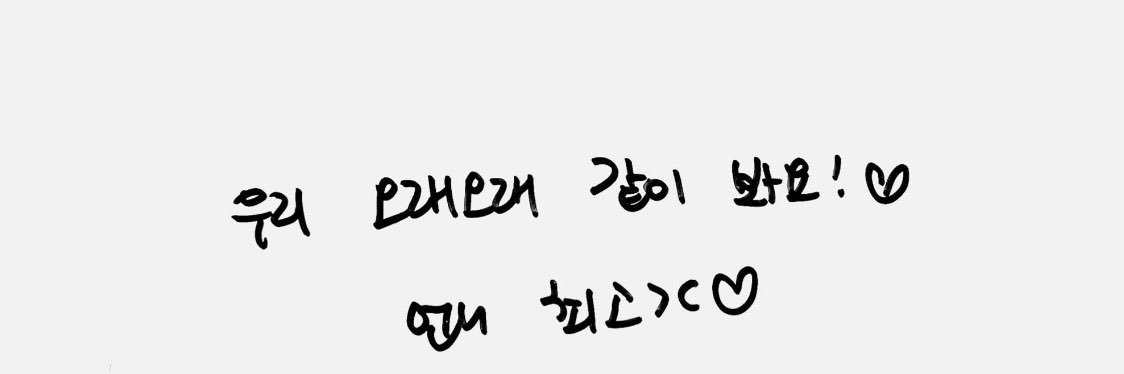 우리 오래오래 같이 봐요!♡
언니 최고><♡